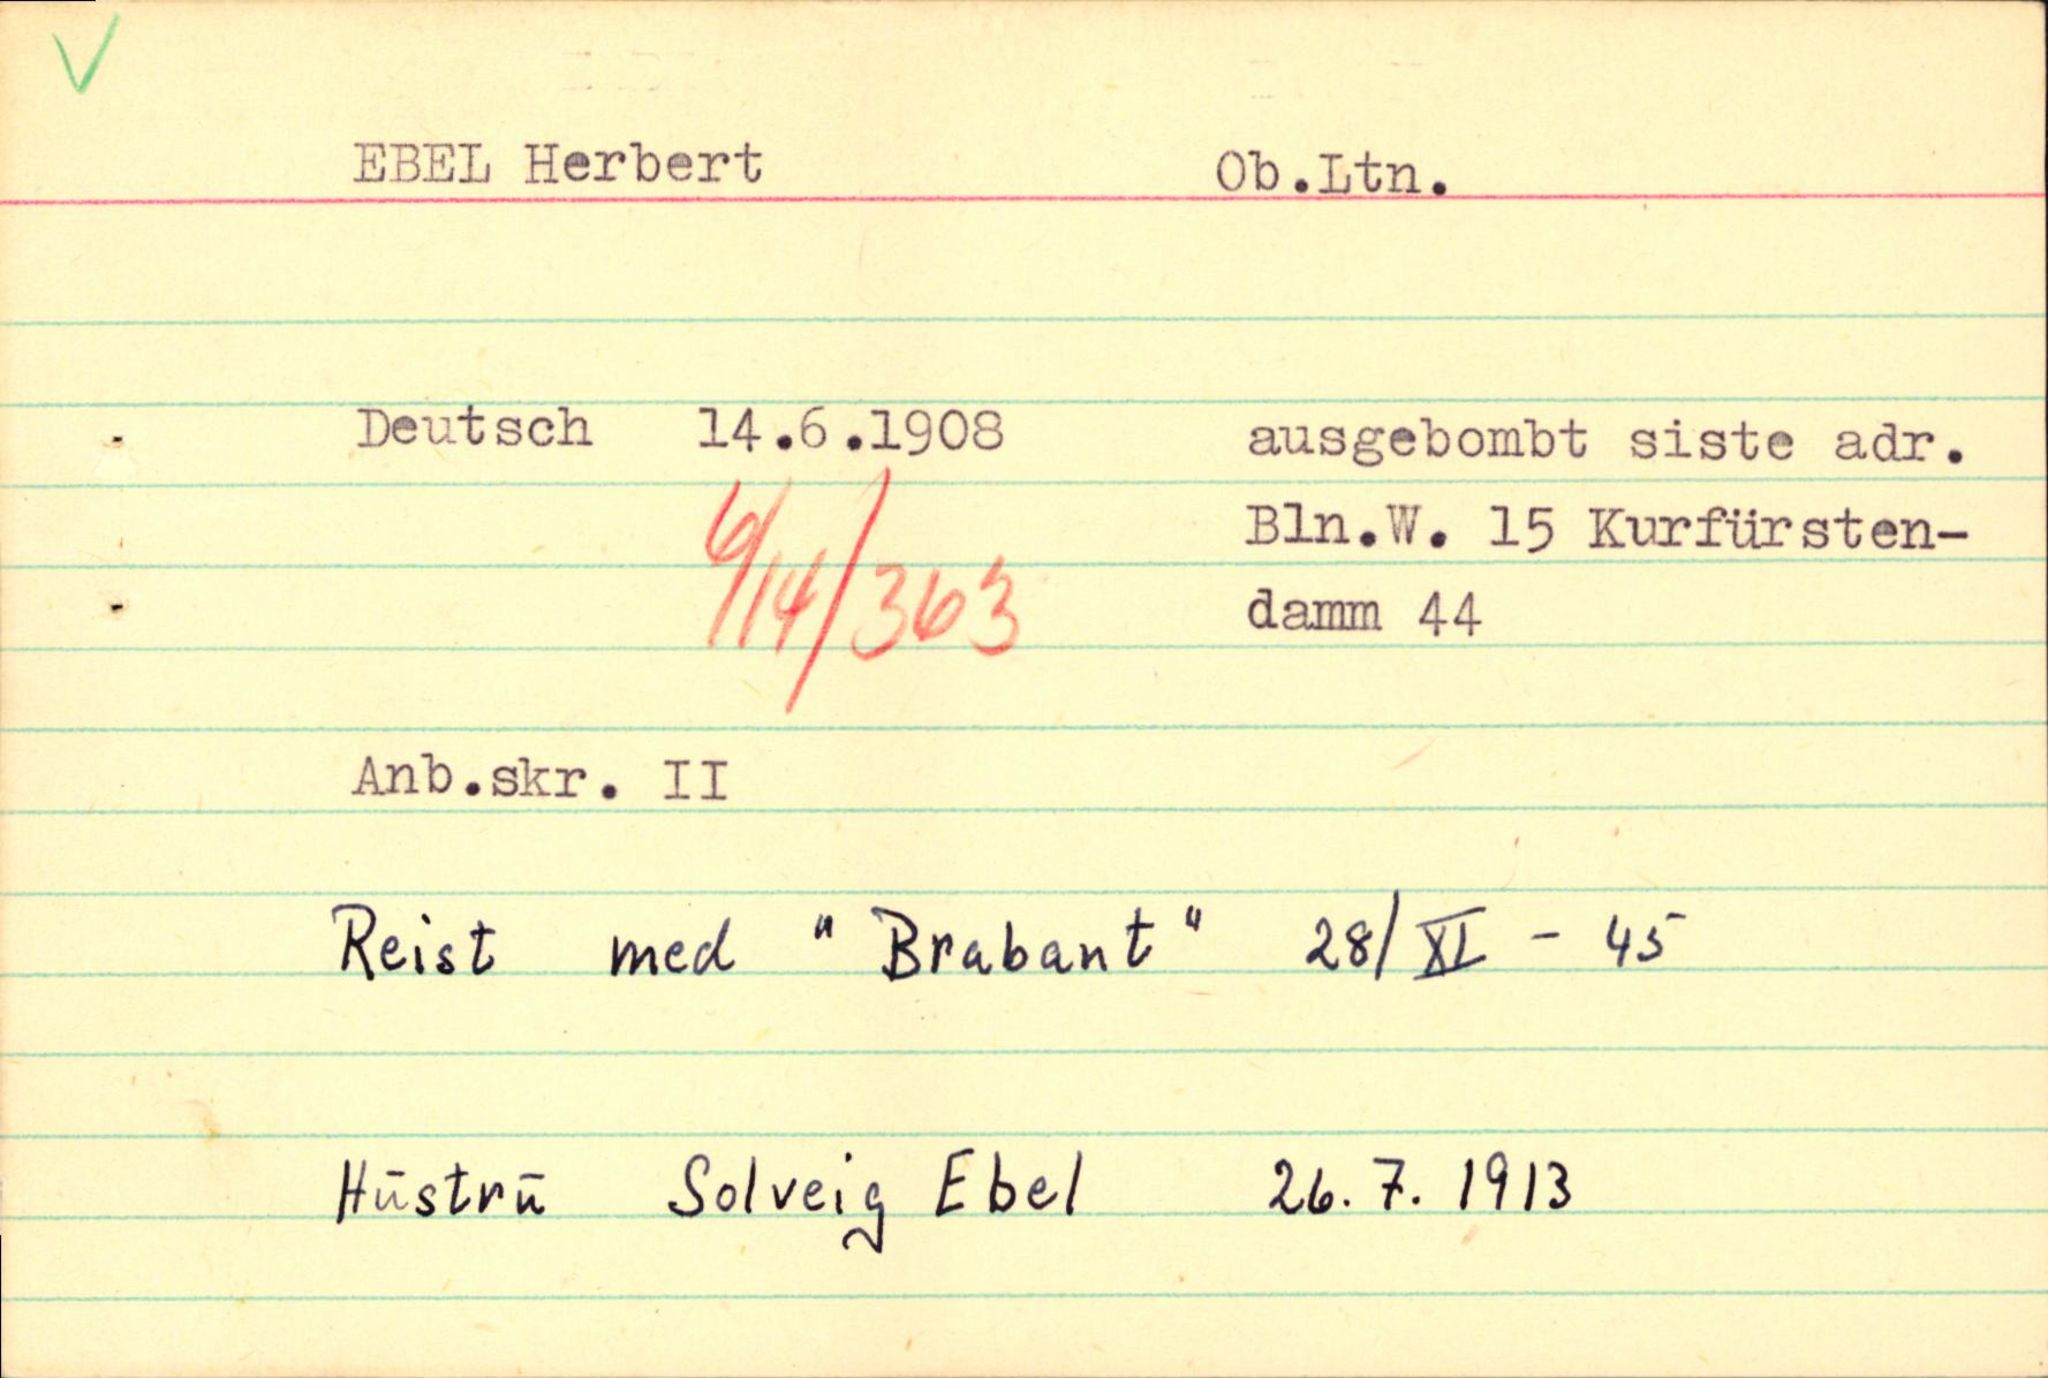 EBEL Herbert Ob.Ltn.
Deutsch 14.6.1908 ausgebombt siste adr.
Bln.W. 15 Kurfürsten-
damm 44
6/14/363
Anb.skr. II
Reist med "Brabant" 28/XI - 45
Hūstrū Solveig Ebel 26.7.1913